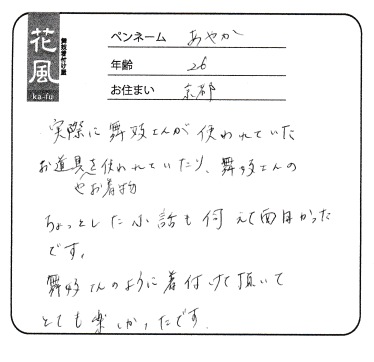 花風
舞妓着付け屋
ka-fu
ペンネーム あやか
年齢 26
お住まい 京都
実際に舞妓さんが使われていた
お道具を使われていたり、舞妓さんの
やお着物
ちょっとした小話も伺えて面白かった
です。
舞妓さんのように着付けて頂いて
とても楽しかったです。